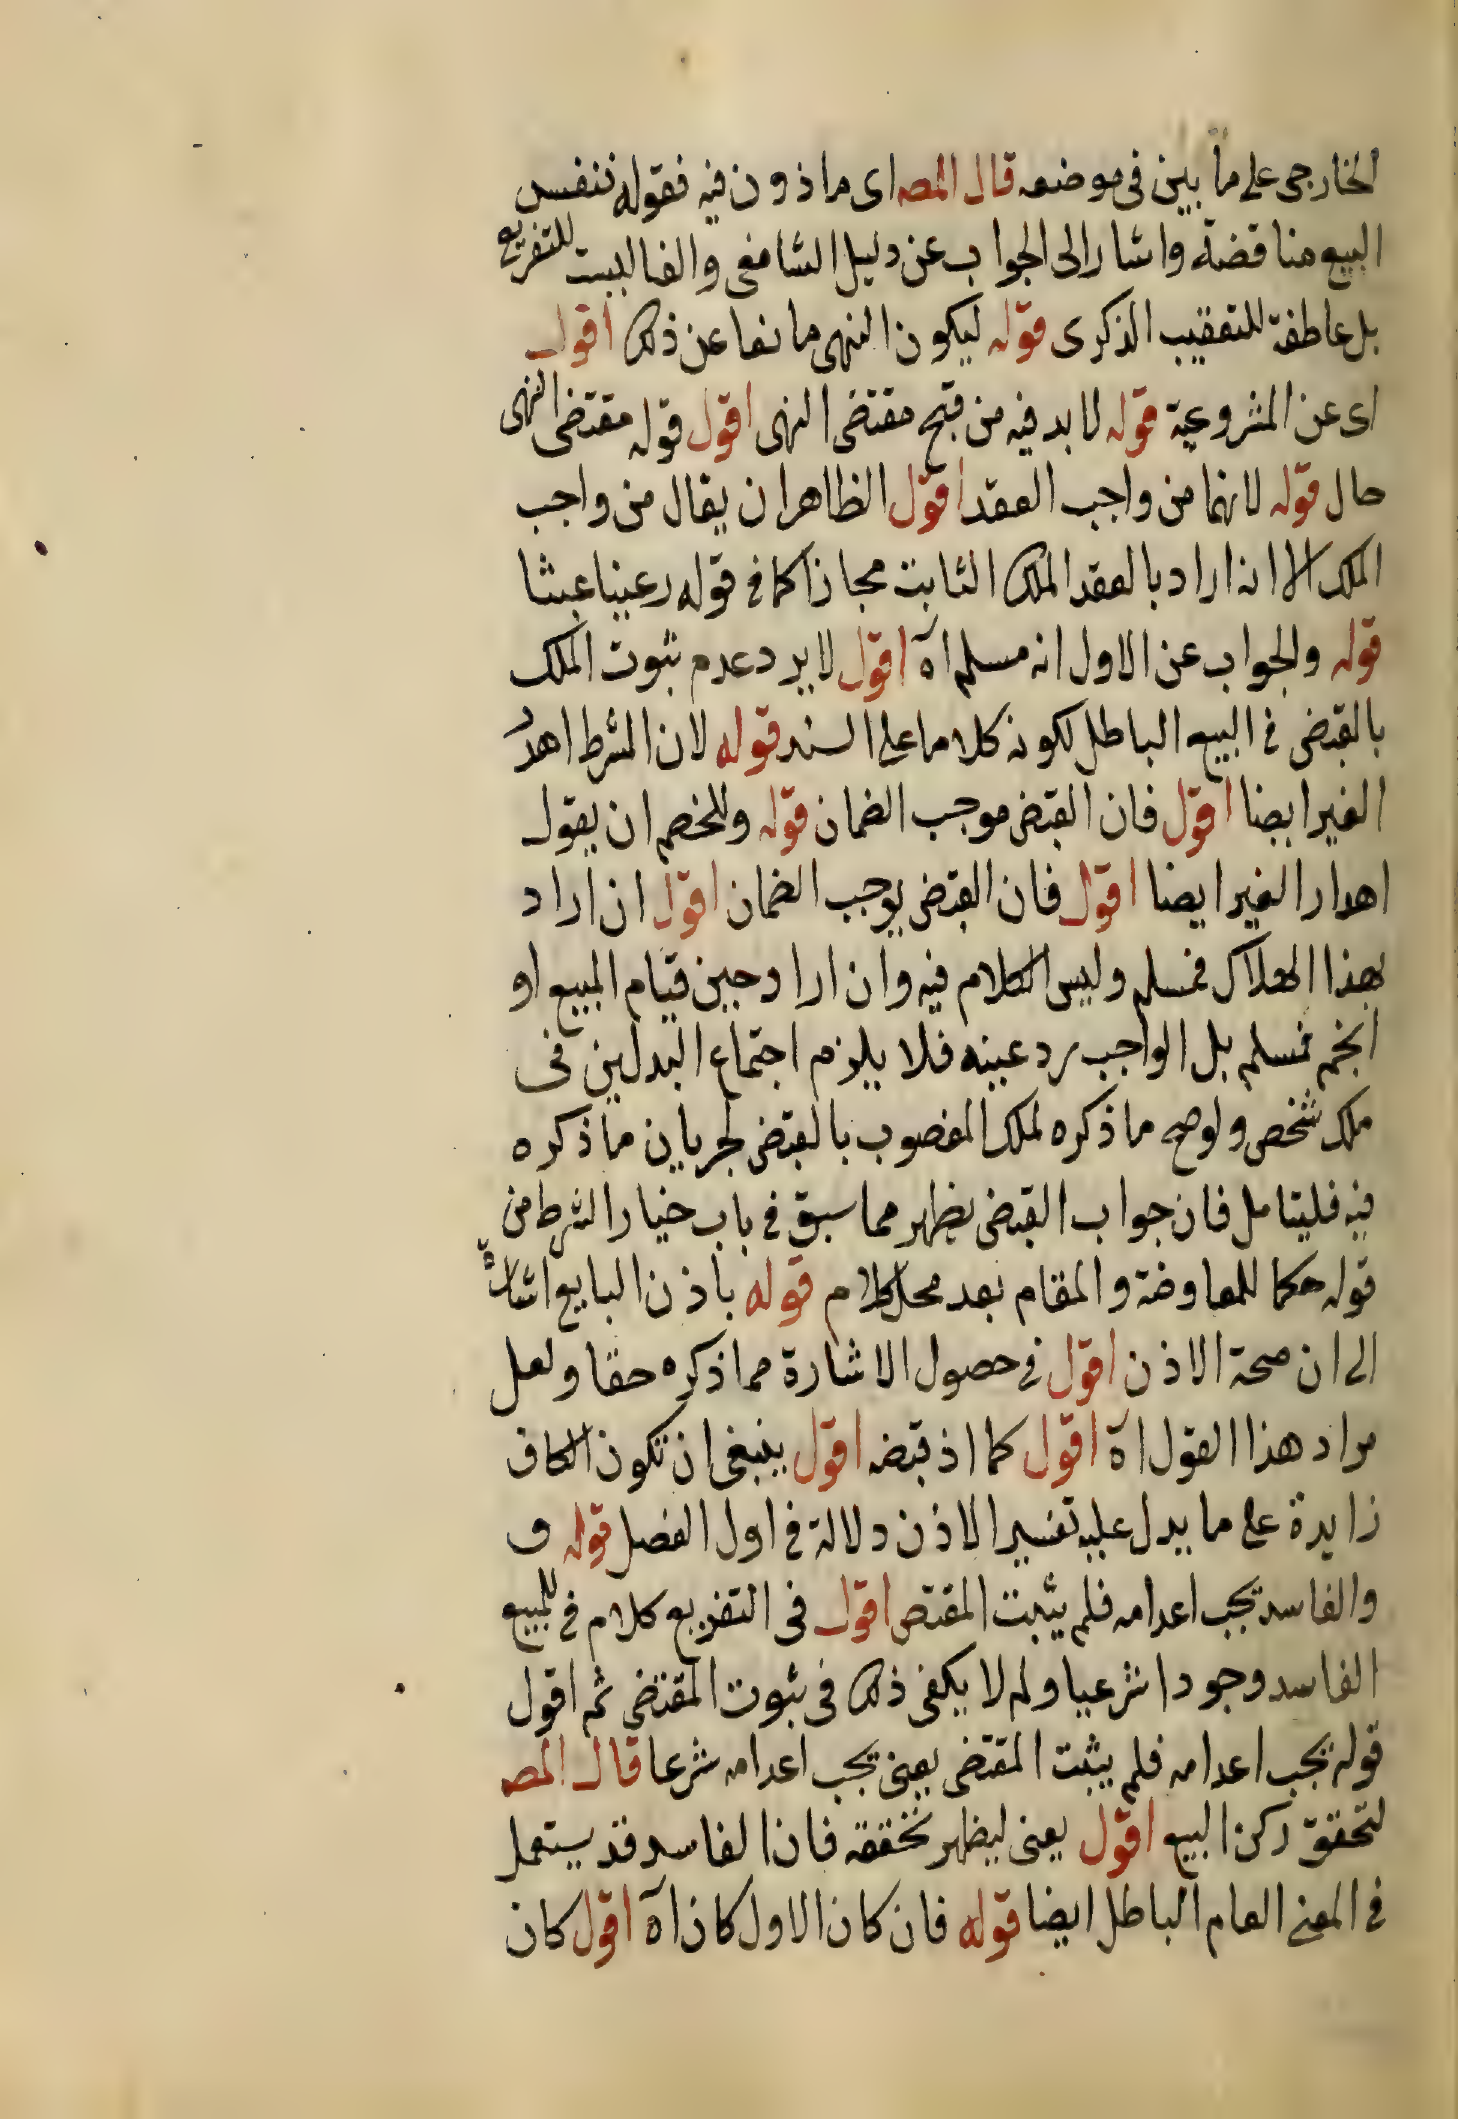 الخارجى على ما بين فى موضعه قال المص اى ماذون فيه فقوله فنفس
البيع مناقضة واشار الى الجواب عن دليل الشافعى والفا ليست للتفريع
بل عاطفة للتعقيب الذكرى قوله ليكون النهى مانعا عن ذلك اقول
اى عن المشروعية قوله لا بد فيه من قبح مقتضى النهى اقول قوله مقتضى النهى
حال قوله لانهما من واجب العقد اقول الظاهر ان يقال من واجب
الملك الا انه اراد بالعقد الملك الثابت مجازا كما فى قوله رعينا غيثا
قوله والجواب عن الاول انه مسلم اه اقول لا يرد عدم ثبوت الملك
بالقبض فى البيع الباطل لكونه كلاما على السند قوله لان الشرط اهدار
الغير ايضا اقول فان القبض موجب الضمان قوله وللخصم ان يقول
اهدار الغير ايضا اقول فان القبض يوجب الضمان اقول ان اراد
بهذا الهلاك فمسلم وليس الكلام فيه وان اراد حين قيام المبيع او
فمسلم بل الواجب رد عينه فلا يلزم اجتماع البدلين فى
ملك شخص ولو صح ما ذكره لملك المغصوب بالقبض لجريان ما ذكره
فيه فليتامل فان جواب القبض يظهر مما سبق فى باب خيار الشرط من
قوله حكما للمعاوضة والمقام بعد محل كلام قوله باذن البايع اشارة
الى ان صحة الاذن اقول فى حصول الاشارة مما ذكره حقا ولعل
مراد هذا القول اه اقول كما اذ قبضه اقول ينبغى ان تكون الكاف
زايدة على ما يدل عليه تفسير الاذن دلالة فى اول الفصل قوله و
والفاسد يجب اعدامه فلم يثبت المقتض اقول فى التفريع كلام فى للمبيع
الفاسد وجودا شرعيا ولم لا يكفى ذلك فى ثبوت المقتضى ثم اقول
قوله يجب اعدامه فلم يثبت المقتضى يعنى يجب اعدامه شرعا قال المص
لتحقق ركن البيع اقول يعنى ليظهر تحققه فان الفاسد قد يستعمل
فى المعنى العام الباطل ايضا قوله فان كان الاول كان اه اقول كان